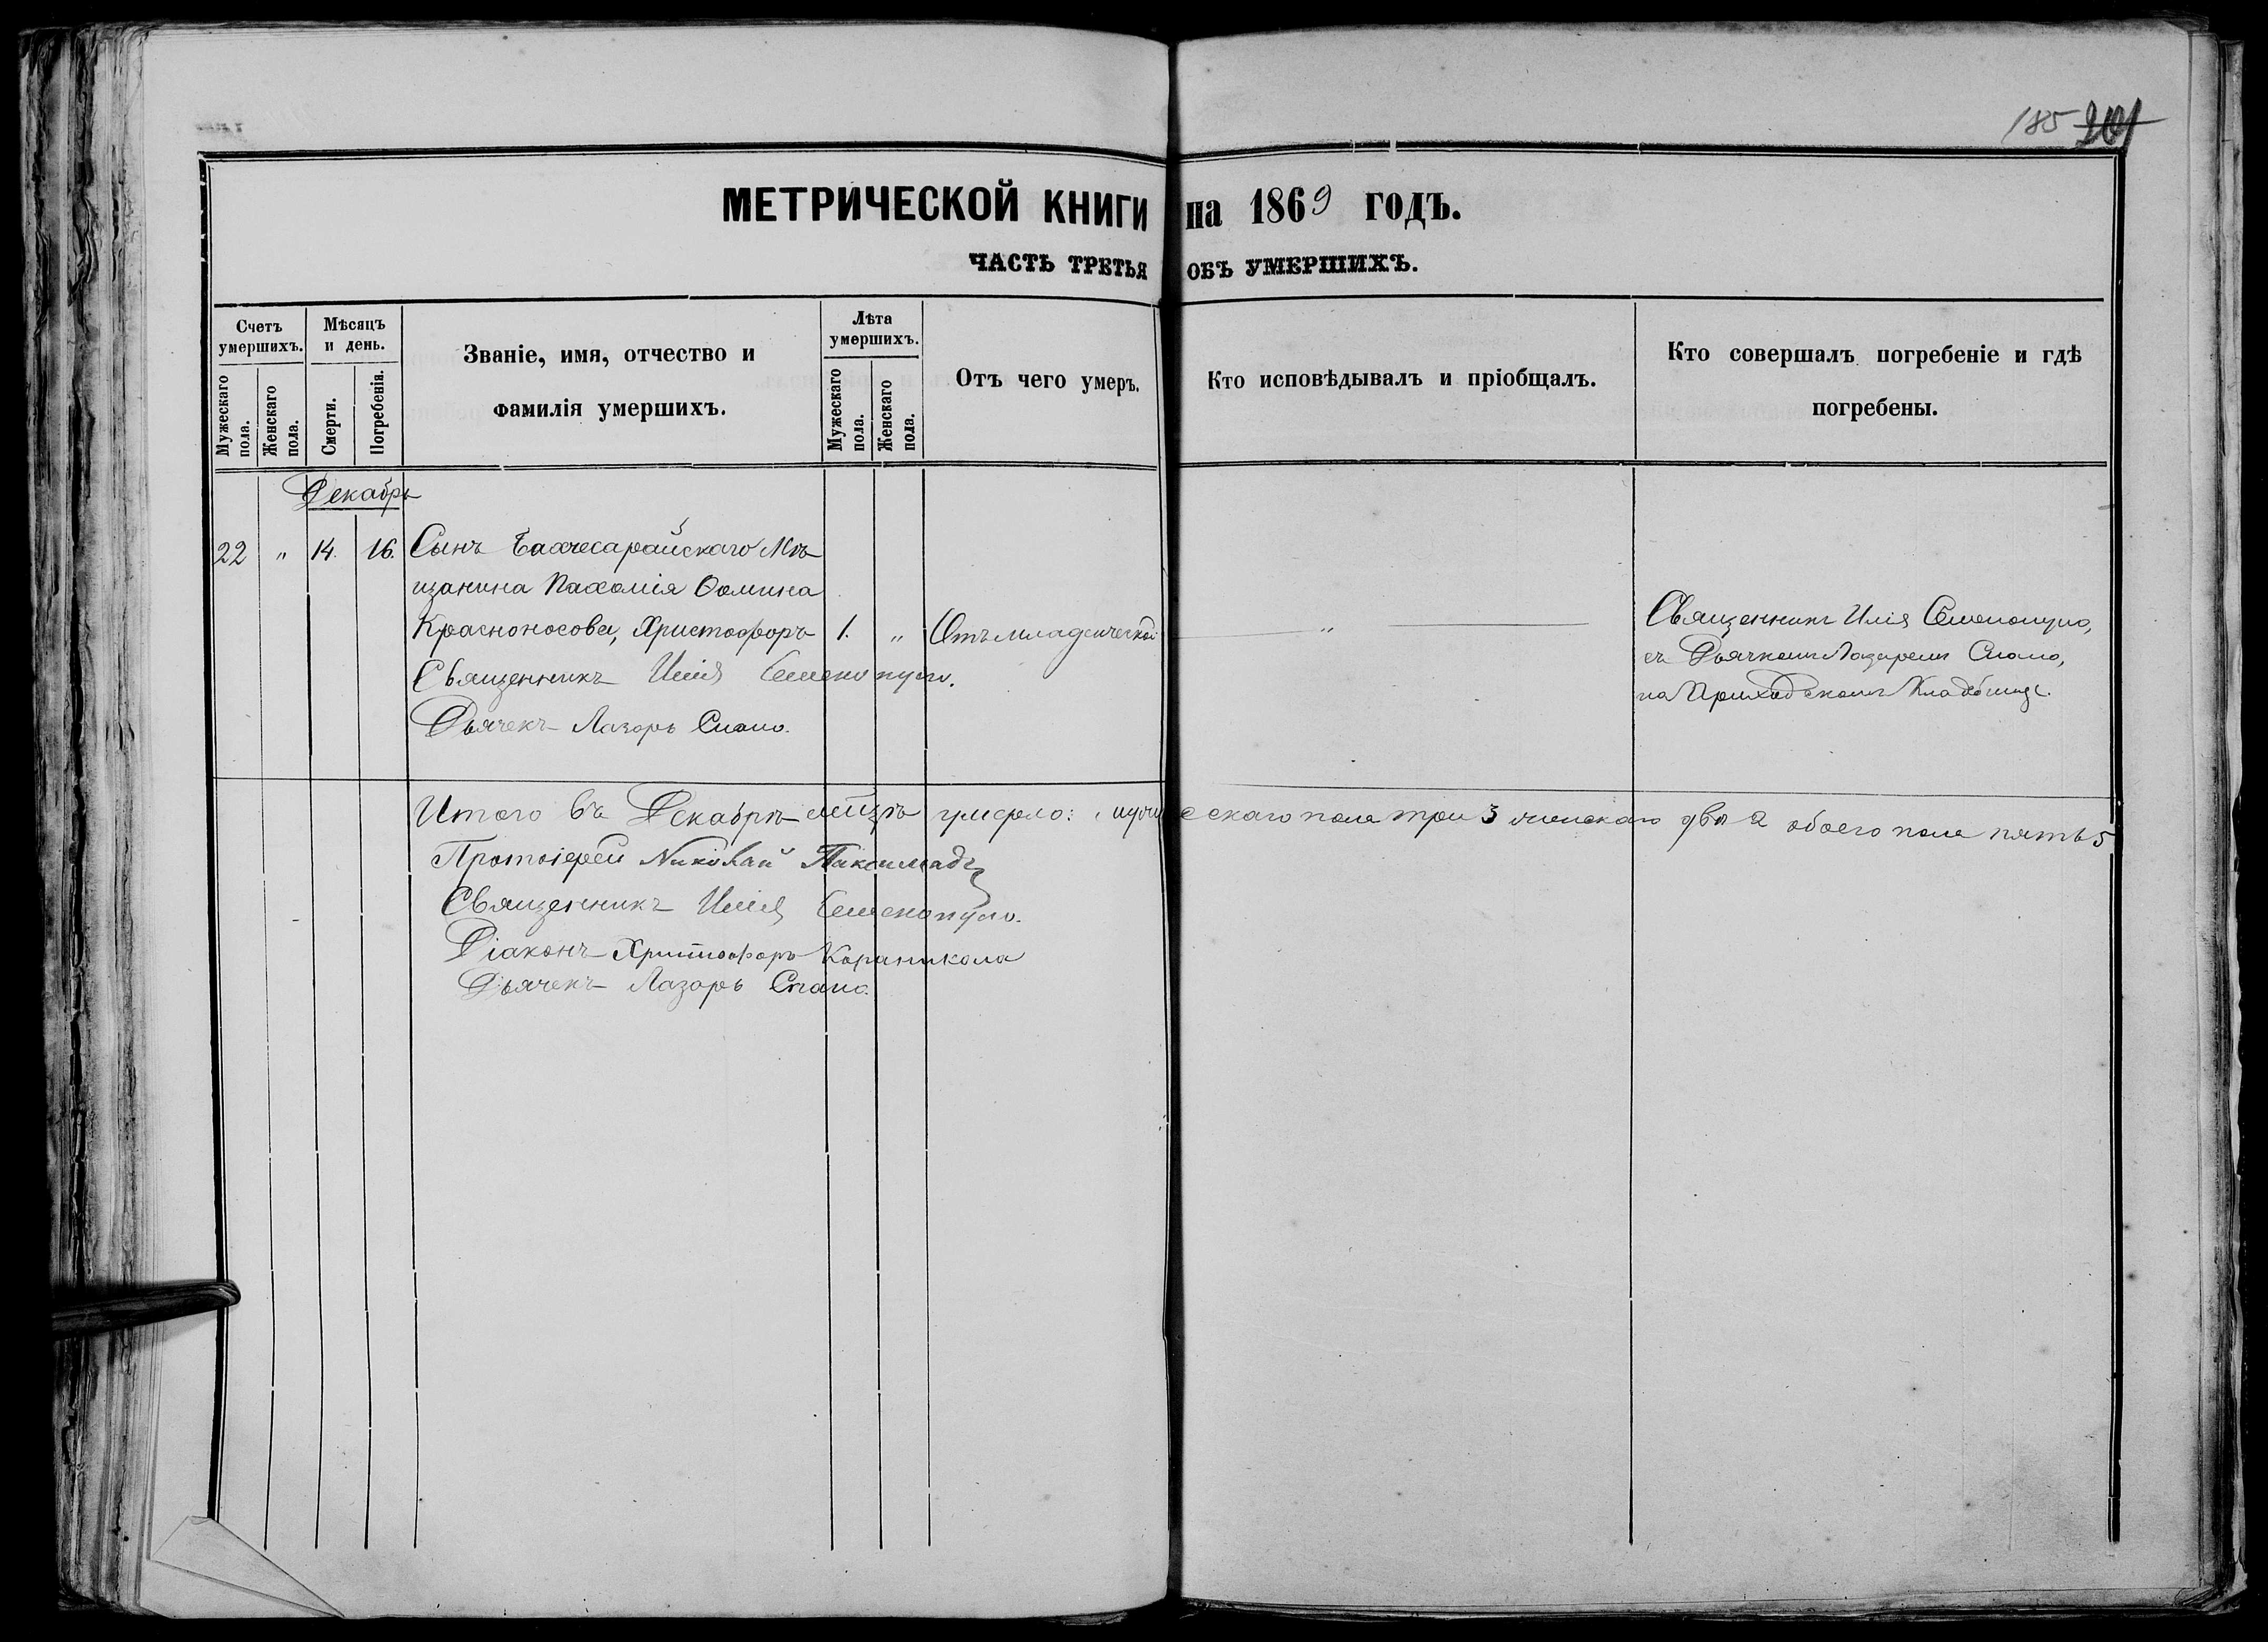 185 201
МЕТРИЧЕСКОЙ КНИГИ на 1869 ГОДЪ.
ЧАСТЬ ТРЕТЬЯ ОБЪ УМЕРШИХЪ.
Счетъ умершихъ.
Мужескаго пола.
Женскаго пола.
Мѣсяцъ и день.
Смерти.
Погребенія.
Званіе, имя, отчество и
фамилія умершихъ.
Лѣта умершихъ.
Мужескаго пола.
Женскаго пола.
Отъ чего умеръ.
Кто исповѣдывалъ и пріобщалъ.
Кто совершалъ погребеніе и гдѣ
погребены.
Декабрь
22 " 14. 16. Сынъ Бахчесарайскаго Мѣ-
щанина Пахомія Ѳомина
Красноносова, Христофоръ 1. " Отъ младенческой "
Священникъ Илія Семенопуло.
Дьячекъ Лазорь Спано.
Священникъ Илія Семенопуло,
съ Дьячкомъ Лазаремъ Спано,
на Приходскомъ Кладбищѣ.
Итого въ Декабрѣ мцѣ умерло: мужескаго пола три 3 женскаго два 2 обоего пола пять 5
Протоіерей Николай
Священникъ Илія Семенопуло.
Діаконъ Христофоръ Караникола
Дьячекъ Лазорь Спано.